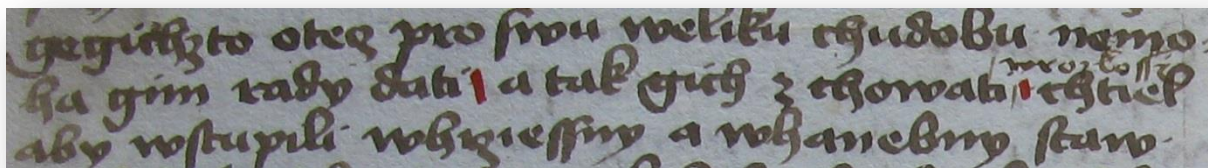 gegichzto oteg pro swu weliku chudobu nemo
ha gim rady dati a tak gich z chowati wrozkossi chtiel
aby wstupili whrziessny a whanebny staw